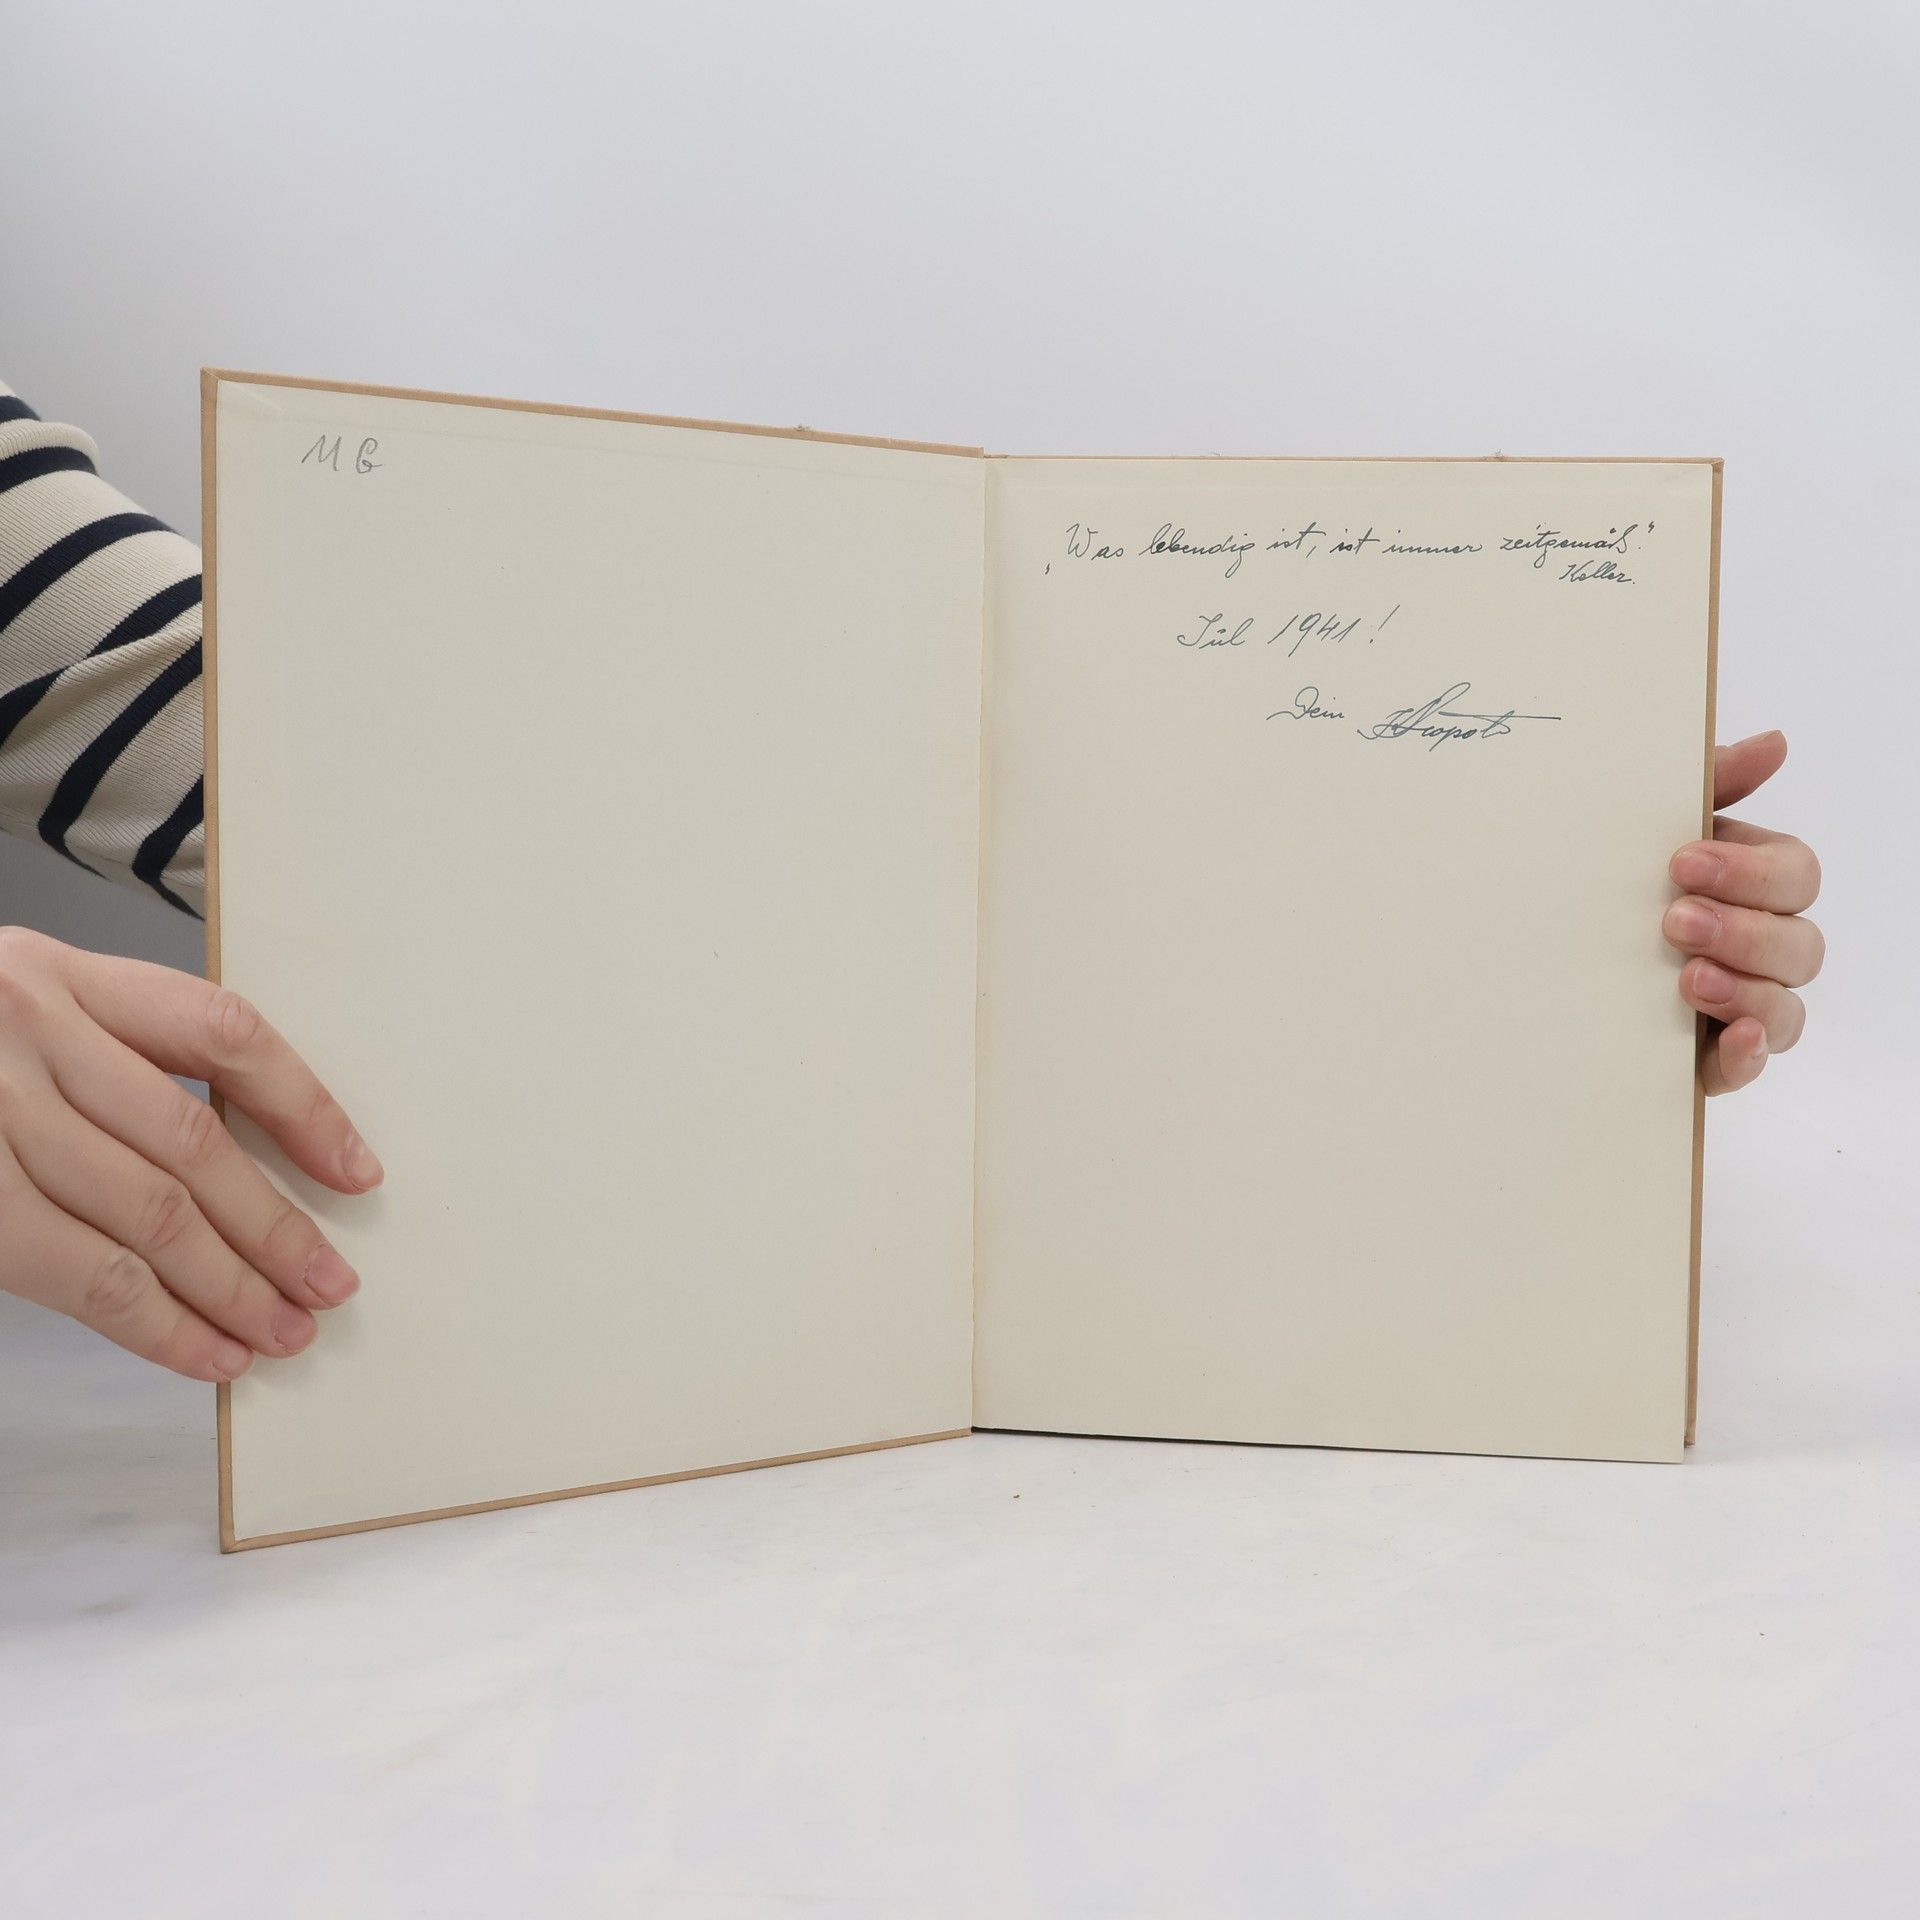 M G
„Was lebendig ist, ist immer zeitgemäß.“
Keller.
Júl 1941!
Dein